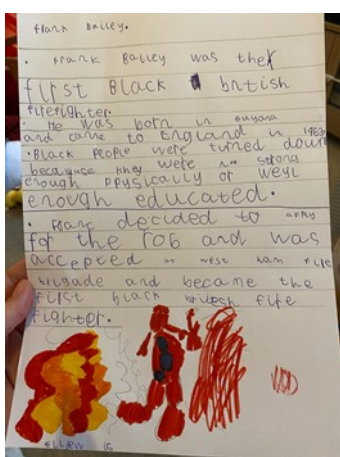 frank Bailey.
. frank Bailey was the
first Black british
firefighter.
. He was born in Guyana
and came to England in 1953.
.Black People were turned down
because they were not strong
enough physically or well
enough educated.
. frank decided to apply
for the Job and was
accepted at west ham fire
brigade and became the
first black british fire
fighter.